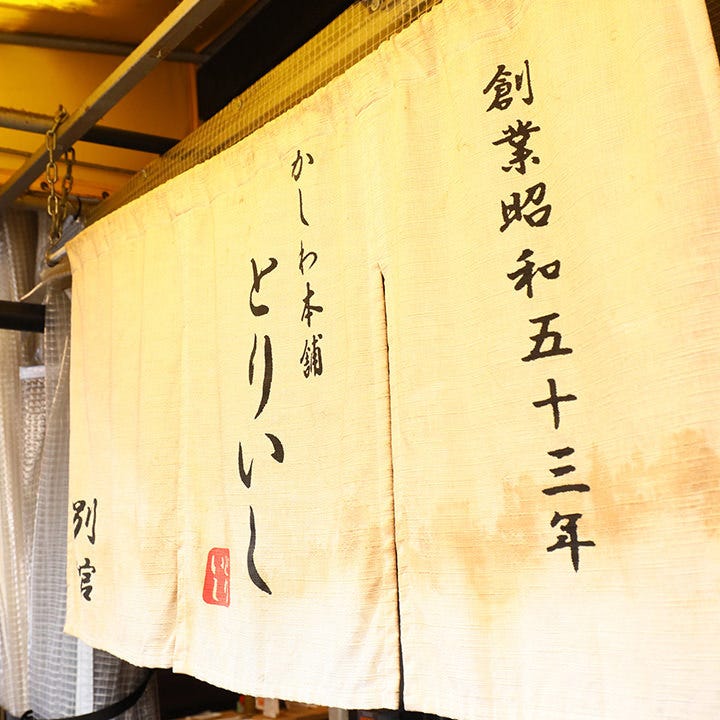 創業昭和五十三年
かしわ本舗
とりいし
とりいし
別宮